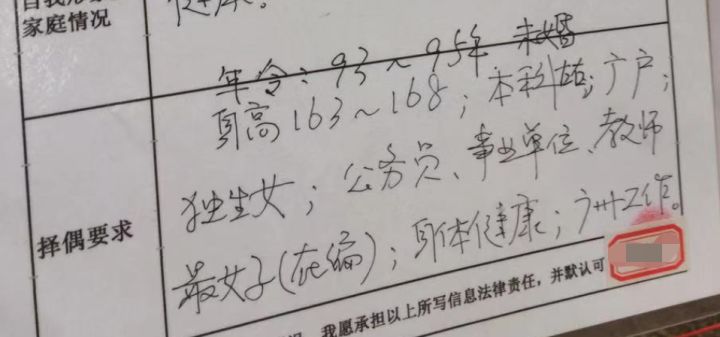 家庭情况
健康.
年令:93～95年 未婚
身高163～168;本科
;广户;
择偶要求
独生女;公务员、事业单位、教师
最女子(在编);身体健康;广州工作。
我愿承担以上所写信息法律责任，并默认可